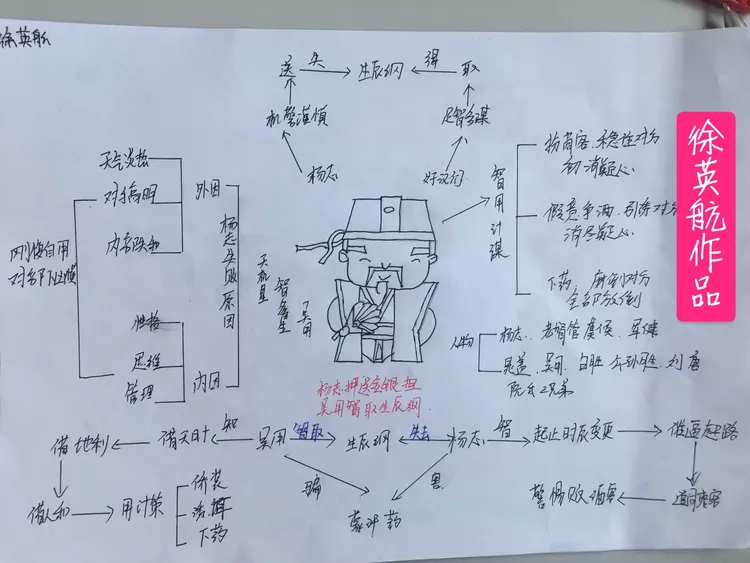 徐英航
送
失
生辰纲
得
取
机警谨慎
足智多谋
杨志
好汉们
智用计谋
扮商客、稳住对方
初消疑心
假意争酒、引诱对方
消尽疑心
下药,
全部放倒
天气炎热
对手精明
内部
外因
杨志失败原因
刚愎自用
对部下
性格
思维
管理
内因
天机星
智多星
吴用
人物
杨志、老都管虞候、军健
晁盖、吴用、白胜、公孙胜、刘唐
阮氏三兄弟
杨志押送金银担
吴用智取生辰纲
借地利
借天时
知
吴用
智取
生辰纲
失去
杨志
智
起止时辰变更
催逼赶路
借人和
用计策
乔装
下药
骗
害
蒙汗药
警惕贩酒客
徐英航作品